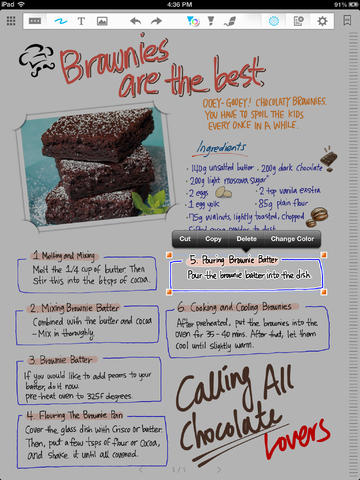 iPad
4:36 PM
91%
T
Brownies
are the best.
OOEY-GOOEY! CHOCOLATY BROWNIES.
YOU HAVE TO SPOIL THE KIDS
EVERY ONCE IN A WHILE.
Ingredients
• 140g unsalted butter • 200g dark chocolate
• 200g light moscova sugar
• 2 eggs • 2 tsp vanila exstra
• 1 egg yolk • 85g plain flour
• 75g walnuts, lightly toasted, chopped
Cut Copy Delete Change Color
1. Melting and Mixing
Melt the 1/4 cup of butter. Then
Stir this into the 6tsps of cocoa.
5. Pouring Brownie Batter
Pour the brownie batter into the dish
2. Mixing Brownie Batter
Combined with the butter and cocoa
- Mix in thoroughly.
6. Cooking and Cooling Brownies
After preheated, put the brownies into the
oven for 35-40 mins. After that, let them
cool until slightly warm.
3. Brownie Batter
If you would like to add pecans to your
batter, do it now.
pre-heat oven to 325F degrees.
4. Flouring The Brownie Pan
Cover the glass dish with Crisco or butter.
Then, put a few tsps of flour or cocoa,
and shake it until all covered.
Calling All
Chocolate
Lovers
1/1